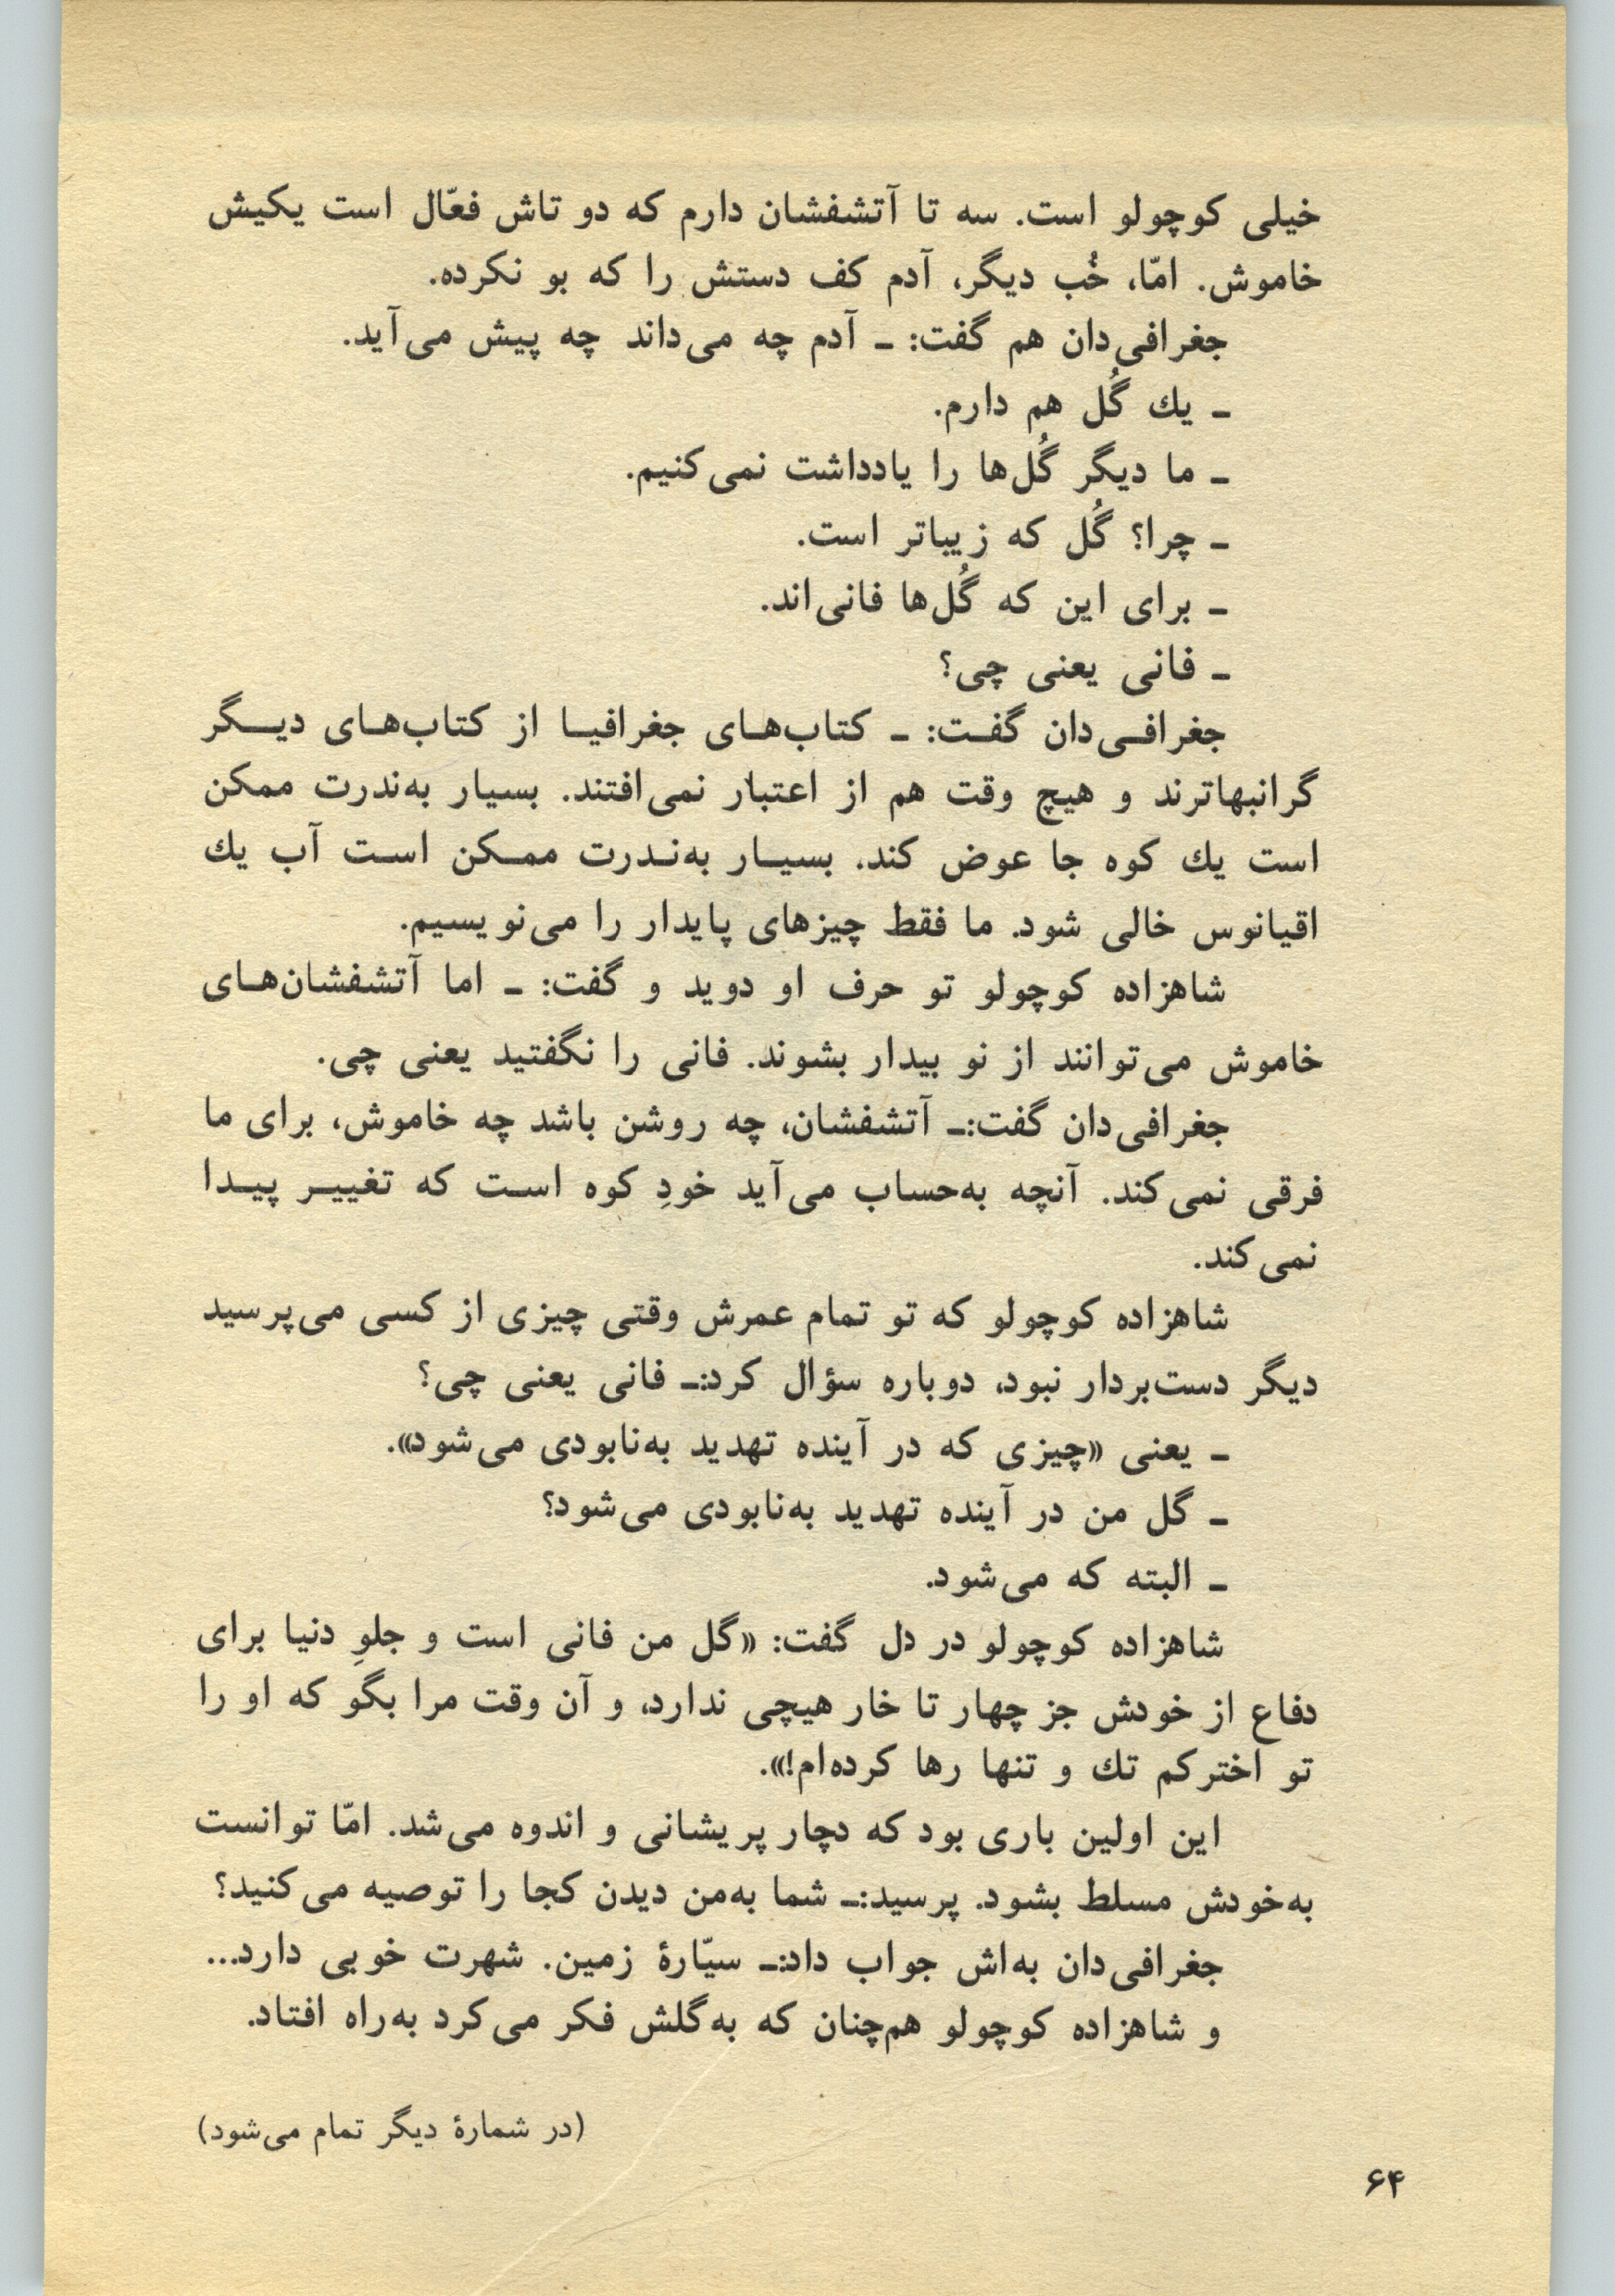 خیلی کوچولو است. سه تا آتشفشان دارم که دو تاش فعّال است یکیش
خاموش. امّا، خُب دیگر، آدم کف دستش را که بو نکرده.
جغرافی‌دان هم گفت: ـ آدم چه می‌داند چه پیش می‌آید.
ـ یك گُل هم دارم.
ـ ما دیگر گُل‌ها را یادداشت نمی‌کنیم.
ـ چرا؟ گُل که زیباتر است.
ـ برای این که گُل‌ها فانی‌اند.
ـ فانی یعنی چی؟
جغرافی‌دان گفت: ـ کتاب‌های جغرافیا از کتاب‌های دیگر
گرانبهاترند و هیچ وقت هم از اعتبار نمی‌افتند. بسیار به‌ندرت ممکن
است یك کوه جا عوض کند. بسیار به‌ندرت ممکن است آب یك
اقیانوس خالی شود. ما فقط چیزهای پایدار را می‌نویسیم.
شاهزاده کوچولو تو حرف او دوید و گفت: ـ اما آتشفشان‌های
خاموش می‌توانند از نو بیدار بشوند. فانی را نگفتید یعنی چی.
جغرافی‌دان گفت:ـ آتشفشان، چه روشن باشد چه خاموش، برای ما
فرقی نمی‌کند. آنچه به‌حساب می‌آید خودِ کوه است که تغییر پیدا
نمی‌کند.
شاهزاده کوچولو که تو تمام عمرش وقتی چیزی از کسی می‌پرسید
دیگر دست‌بردار نبود، دوباره سؤال کرد:ـ فانی یعنی چی؟
ـ یعنی «چیزی که در آینده تهدید به‌نابودی می‌شود».
ـ گل من در آینده تهدید به‌نابودی می‌شود؟
ـ البته که می‌شود.
شاهزاده کوچولو در دل گفت: «گل من فانی است و جلوِ دنیا برای
دفاع از خودش جز چهار تا خار هیچی ندارد، و آن وقت مرا بگو که او را
تو اخترکم تك و تنها رها کرده‌ام!».
این اولین باری بود که دچار پریشانی و اندوه می‌شد. امّا توانست
به‌خودش مسلط بشود. پرسید:ـ شما به‌من دیدن کجا را توصیه می‌کنید؟
جغرافی‌دان به‌اش جواب داد:ـ سیّارهٔ زمین. شهرت خوبی دارد...
و شاهزاده کوچولو هم‌چنان که به‌گلش فکر می‌کرد به‌راه افتاد.
(در شمارهٔ دیگر تمام می‌شود)
۶۴